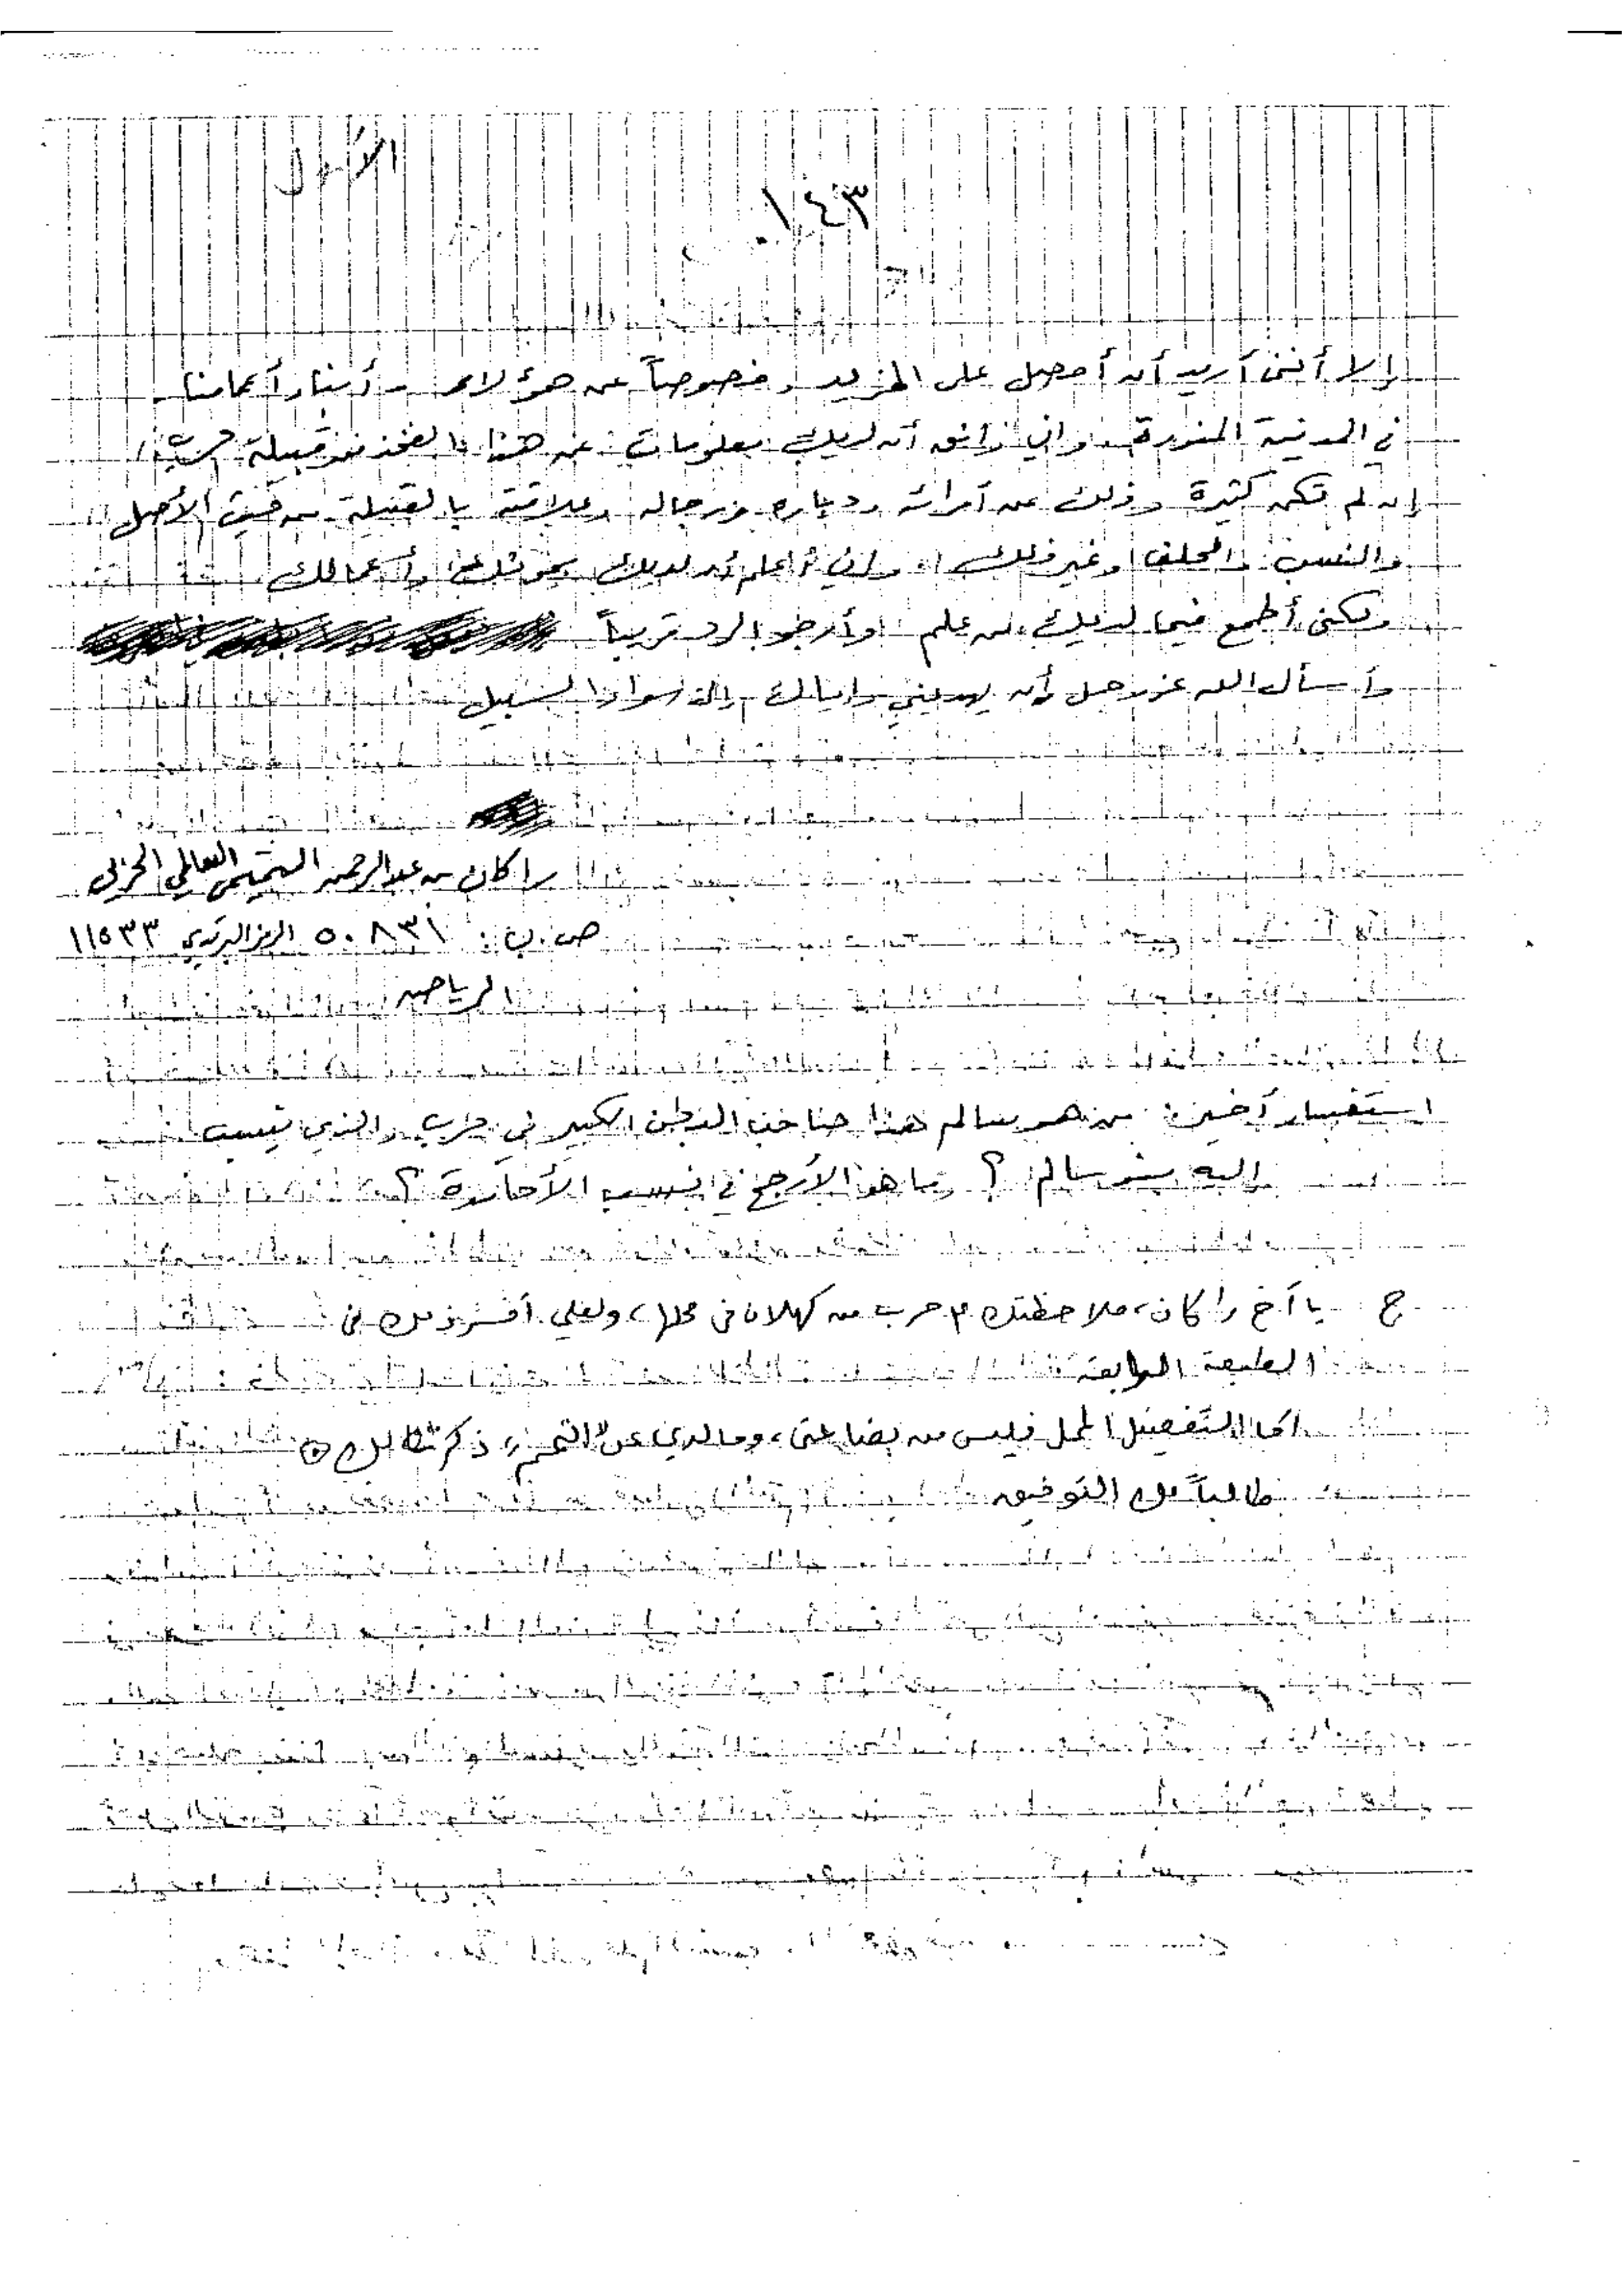 الأول
١٤٣
إلا أنني أريد أن أحصل على المزيد وخصوصاً عن هؤلاء - أبناء أعمامنا -
في المدينة المنورة وإني واثق أن لديك معلومات عن هذا الفخذ من قبيلة حرب
إن لم تكن كثيرة وذلك عن أمرائه ودياره ورجاله وعلاقته بالقبيلة من حيث الأصل
والنسب والحلف وغير ذلك وإني أعلم أن لديك بحوثك وأعمالك
ولكني أطمع فيما لديك من علم وأرجو الرد قريباً
وأسأل الله عز وجل أن يهديني وإياك إلى سواء السبيل
راكان بن عبدالرحمن التميمي السالمي الحربي
ص.ب: ٥٠٨٣١ الرمز البريدي ١١٥٣٣
الرياض
استفسار أخير: من هو سالم هذا صاحب البطن الكبير في حرب والذي تنسب
إليه بنو سالم؟ وما هو الأرجح في نسب الأحامدة؟
ج يا أخ راكان، ملاحظتك م حرب من كهلان في محلها، ولعلي أفسر ذلك في
الطبعة الرابعة
أما التفصيل الممل فليس من بضاعتي، وما لدي عن التمم، ذكرته لك
طالباً لك التوفيق